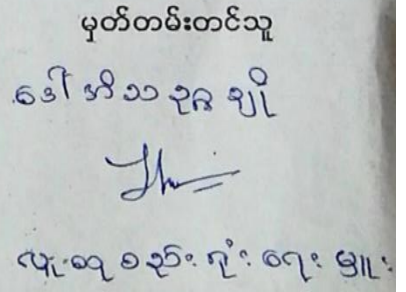 မှတ်တမ်းတင်သူ
ဒေါ်အိသဥ္ဇာချို
လူထုစည်းရုံးရေးမှူး